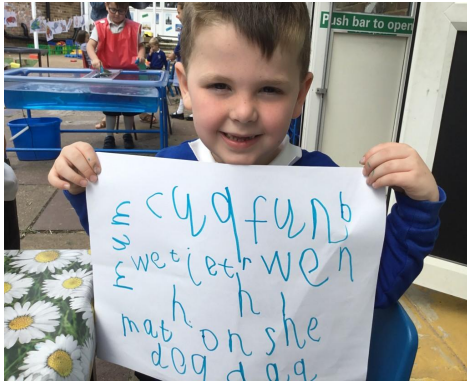 Push bar to open
mum
fun
wet jet wen
h h
mat on she
dog dag